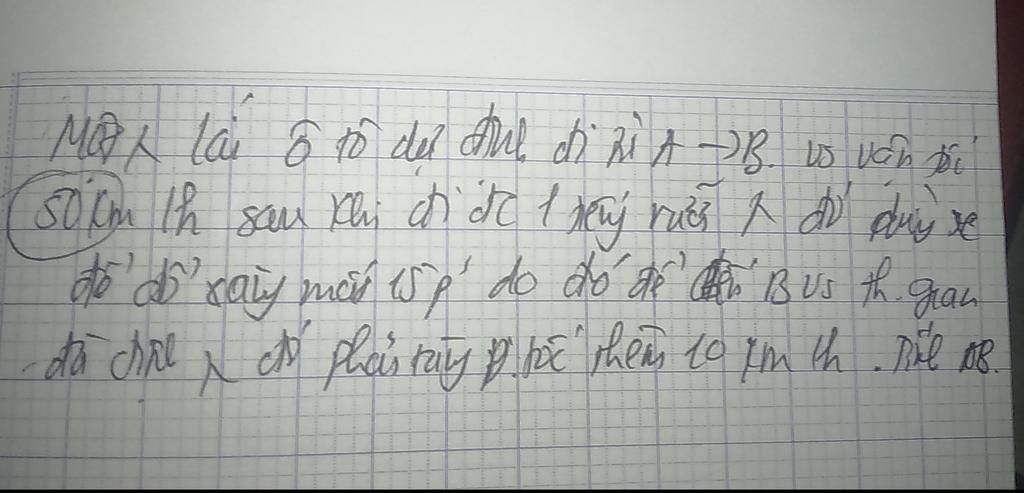 Một λ lái ô tô dự định đi từ A → B. vs vận tốc
50 km /h sau khi đi đc 1 tiếng rưỡi λ đó dừng xe
để đổ xăng mất 15 p' do đó để đến B vs th. gian
đã định λ đó phải tăng v. tốc thêm 10 km /h. Tính AB.